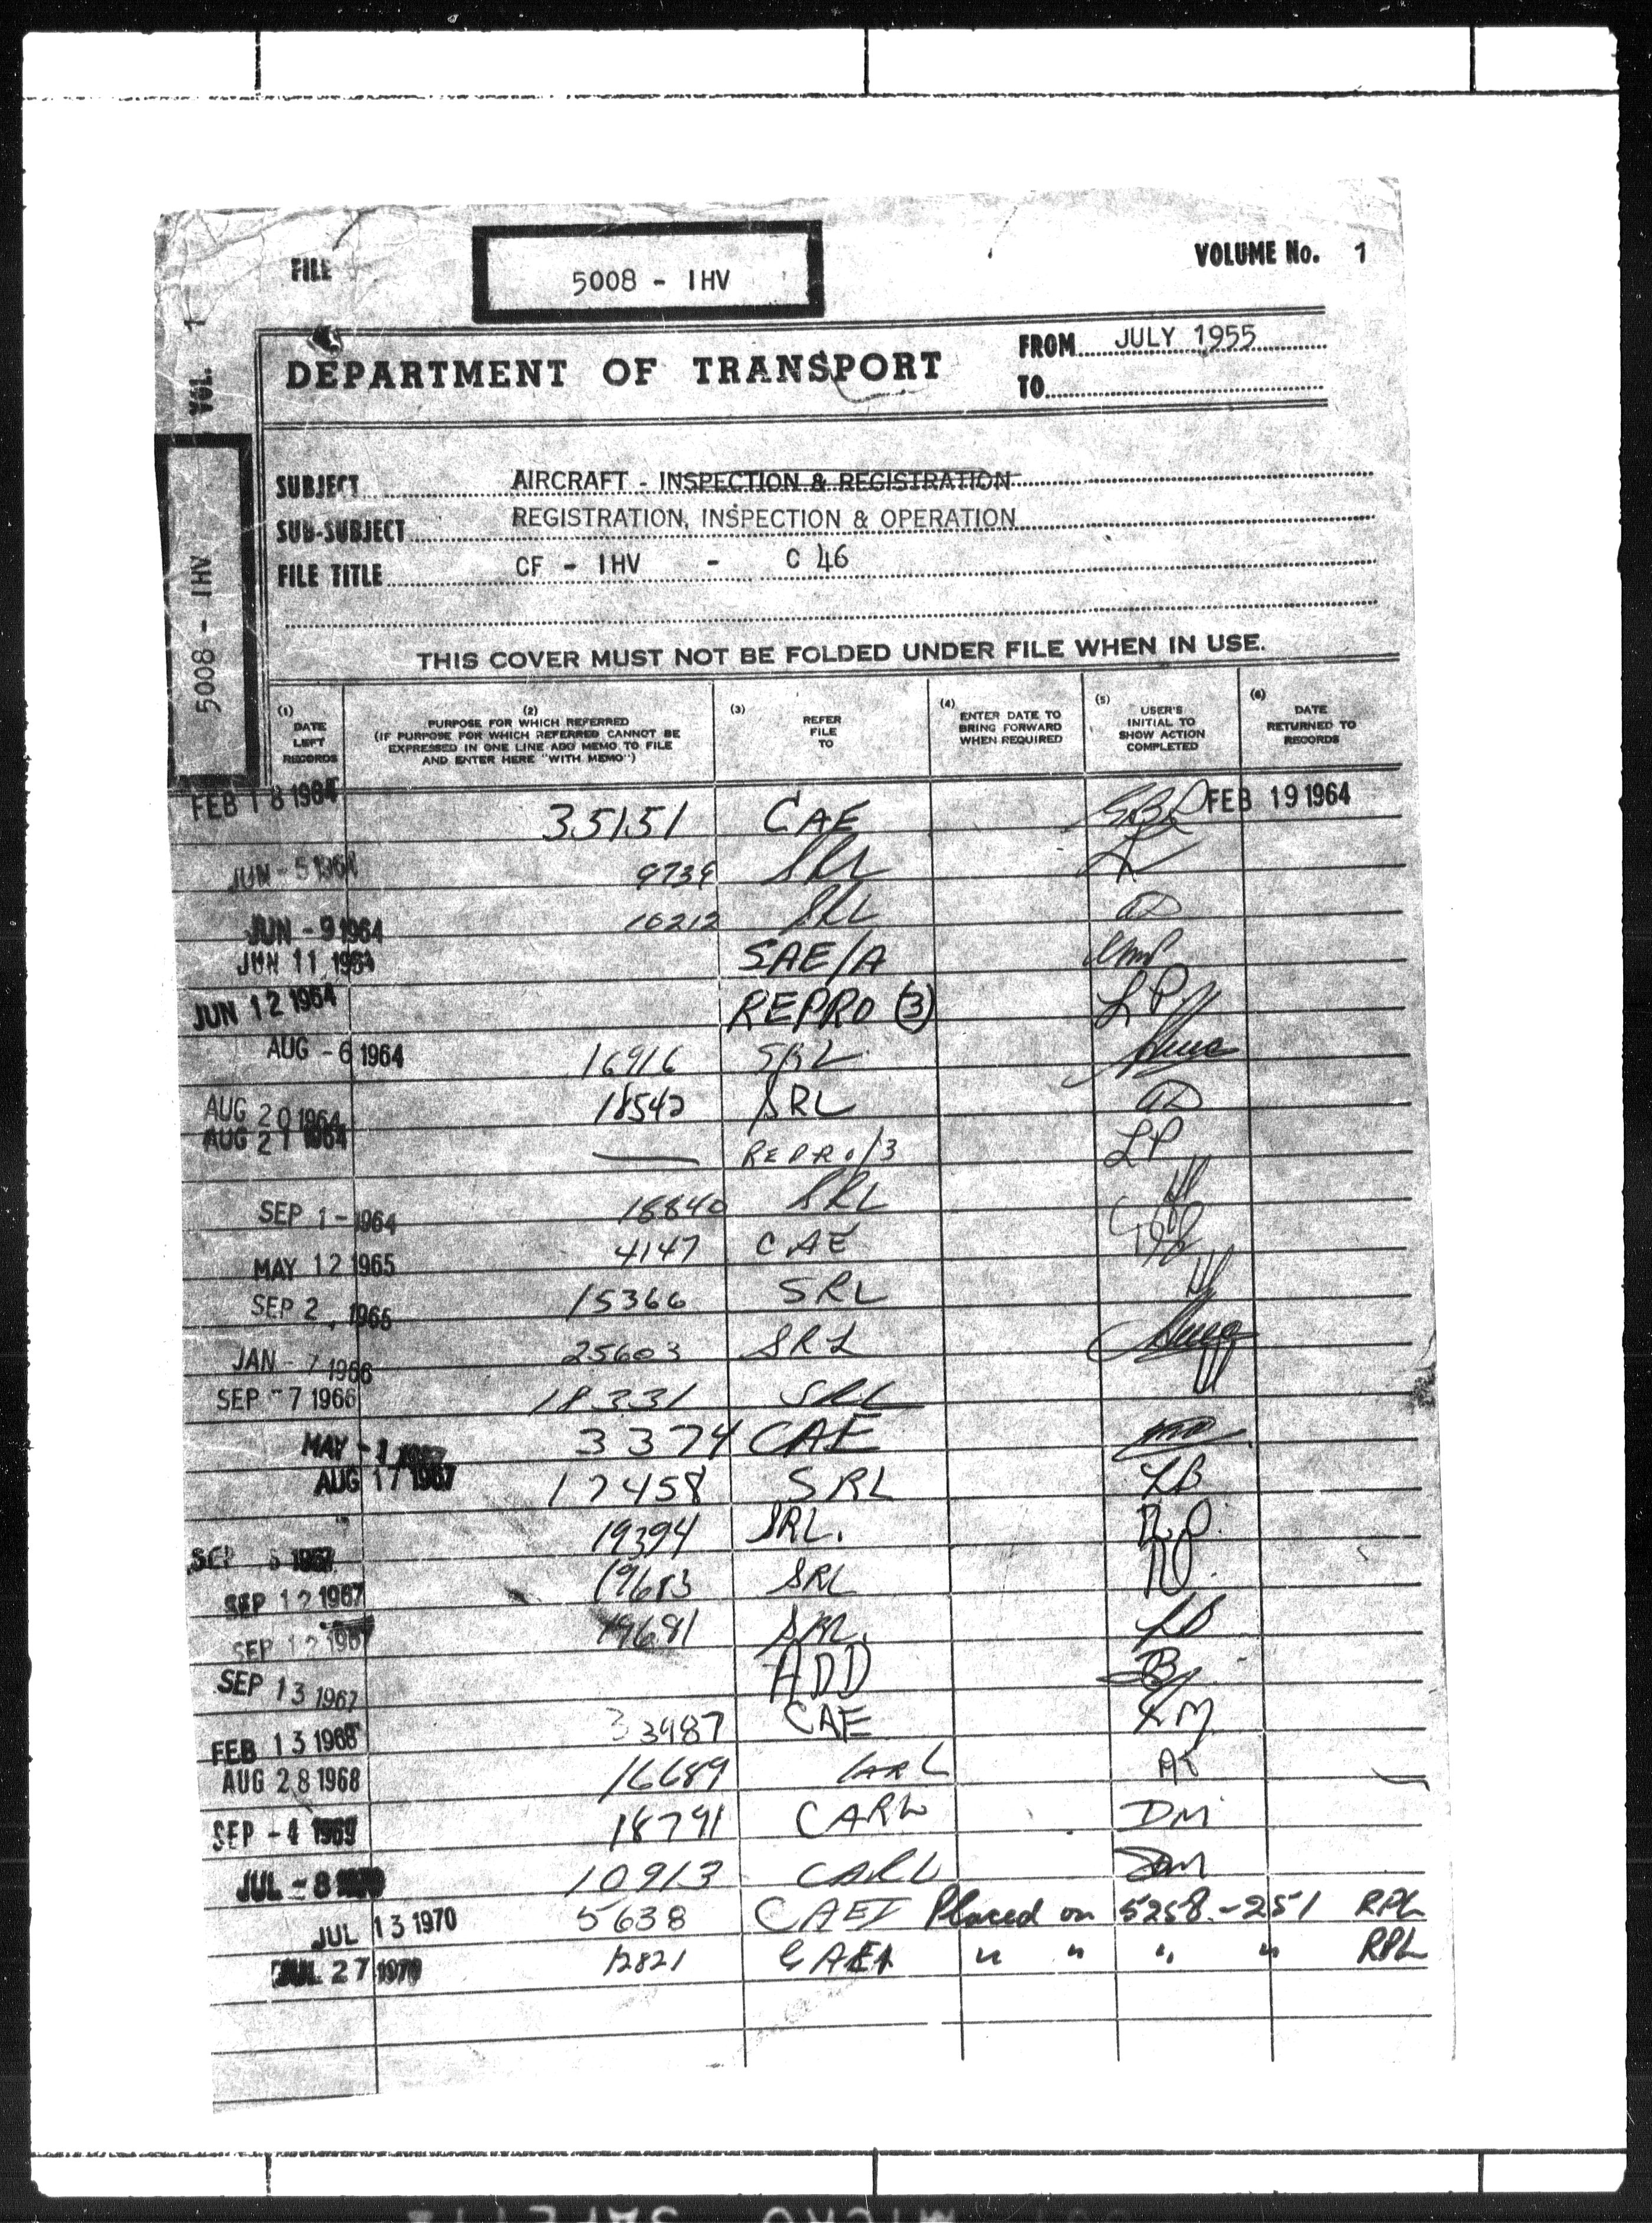 FILE 5008 - IHV VOLUME No. 1
VOL. 1
5008 - IHV
DEPARTMENT OF TRANSPORT
FROM JULY 1955
TO
SUBJECT AIRCRAFT - INSPECTION & REGISTRATION
SUB-SUBJECT REGISTRATION, INSPECTION & OPERATION
FILE TITLE CF - IHV - C 46
THIS COVER MUST NOT BE FOLDED UNDER FILE WHEN IN USE.
(1) DATE LEFT RECORDS
(2) PURPOSE FOR WHICH REFERRED (IF PURPOSE FOR WHICH REFERRED CANNOT BE EXPRESSED IN ONE LINE ADD MEMO TO FILE AND ENTER HERE "WITH MEMO")
(3) REFER FILE TO
(4) ENTER DATE TO BRING FORWARD WHEN REQUIRED
(5) USER'S INITIAL TO SHOW ACTION COMPLETED
(6) DATE RETURNED TO RECORDS
FEB 18 1964 35151 CAE FEB 19 1964
JUN - 5 1964 9739 SRL
JUN - 9 1964 10212 SRL
JUN 11 1964 SAE/A
JUN 12 1964 REPRO (3) LP
AUG - 6 1964 16916 SRL
AUG 20 1964 18542 SRL
AUG 21 1964 — REPRO/3 LP
SEP 1 - 1964 18840 SRL
MAY 12 1965 4147 CAE
SEP 2, 1965 15366 SRL
JAN - 7 1966 25603 SRL
SEP - 7 1966 18331 SRL
MAY - 1 1967 3374 CAE
AUG 17 1967 17458 SRL LB
SEP 5 1967 19394 SRL.
SEP 12 1967 19683 SRL
SEP 12 1967 19681 SRL.
SEP 13 1967 ADD
FEB 13 1968 33487 CAE
AUG 28 1968 16689 CARL
SEP - 4 1969 18791 CARL DM
JUL - 8 1970 10913 CARL
JUL 13 1970 5638 CAEI Placed on 5258-251 RPL
JUL 27 1970 12821 CAEI " " " " RPL